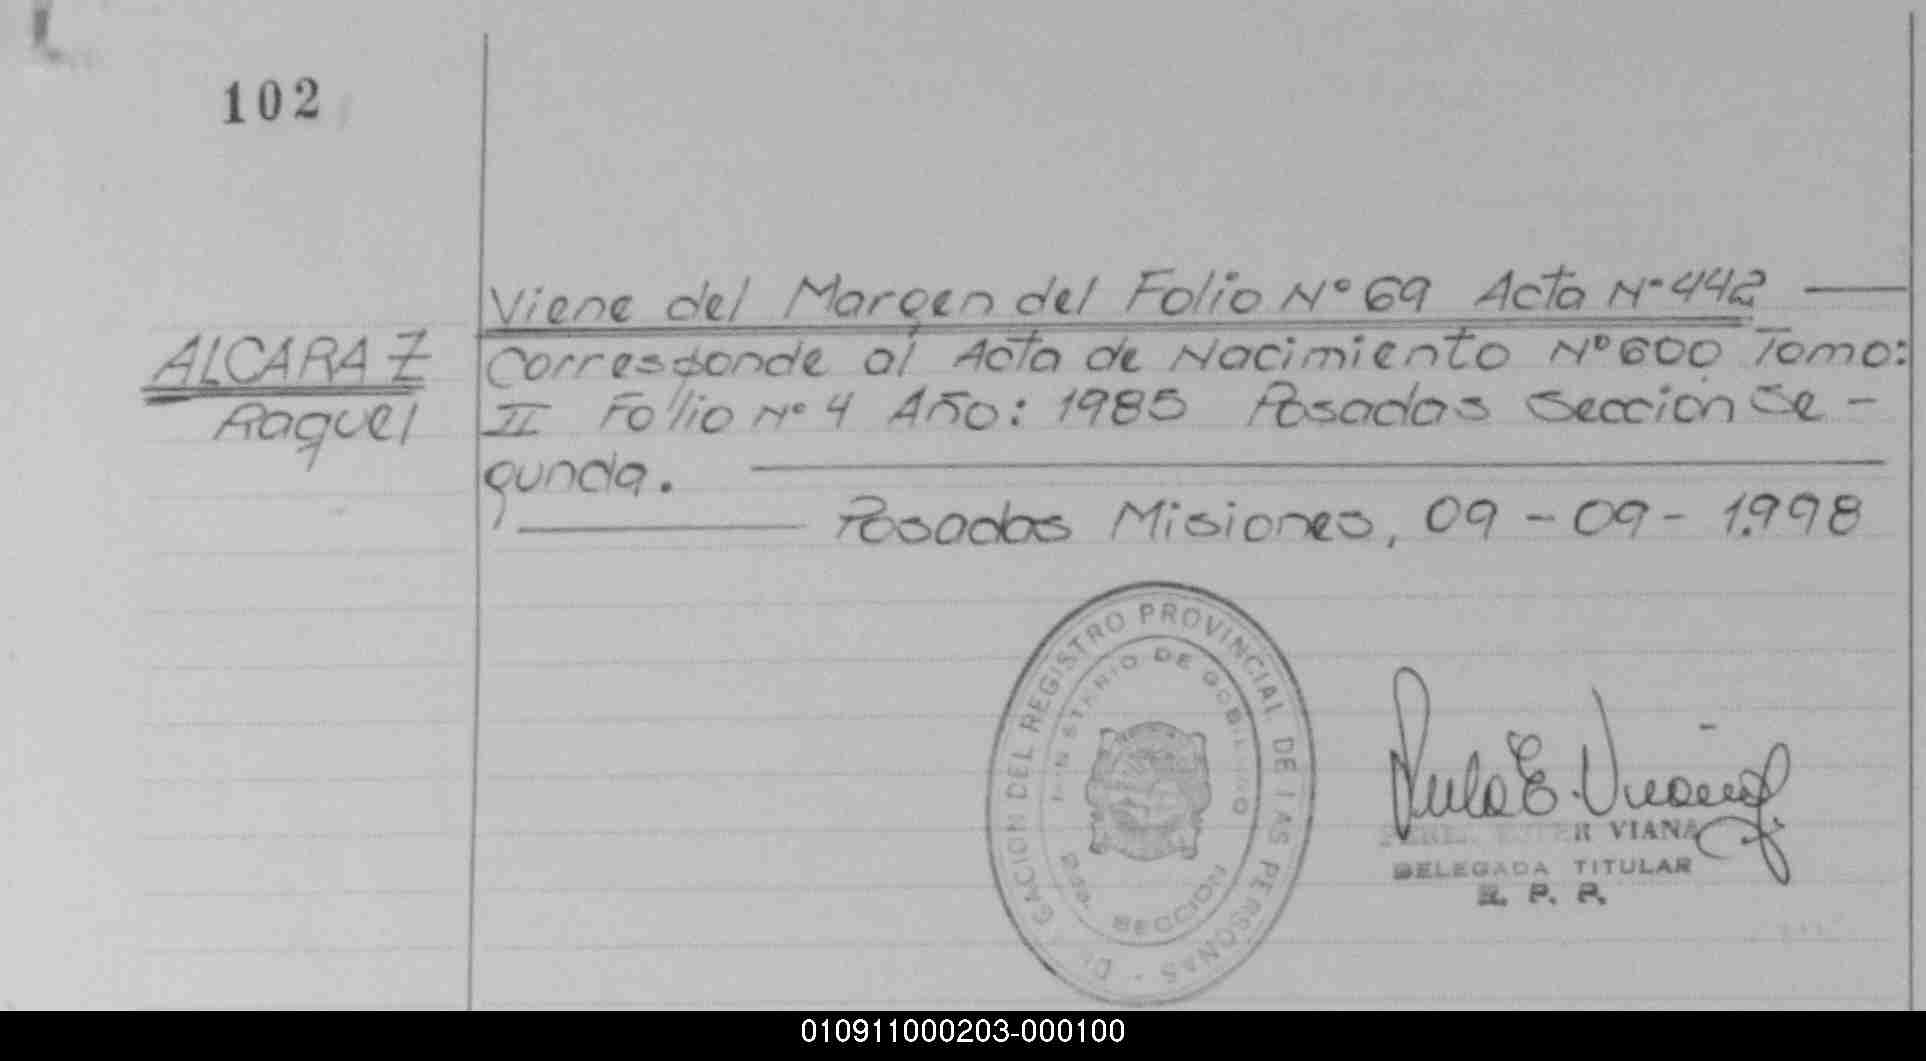 102
Viene del Margen del Folio Nº 69 Acta Nº 442
ALCARAZ
Raquel
Corresponde al Acta de Nacimiento Nº 600 Tomo:
II Folio Nº 4 Año: 1985 Posadas Sección Se-
gunda.
Posadas Misiones, 09-09-1.998
DELEGACION DEL REGISTRO PROVINCIAL DE LAS PERSONAS
MINISTERIO DE GOBIERNO
2da. SECCION
VIANA
DELEGADA TITULAR
R. P. P.
010911000203-000100